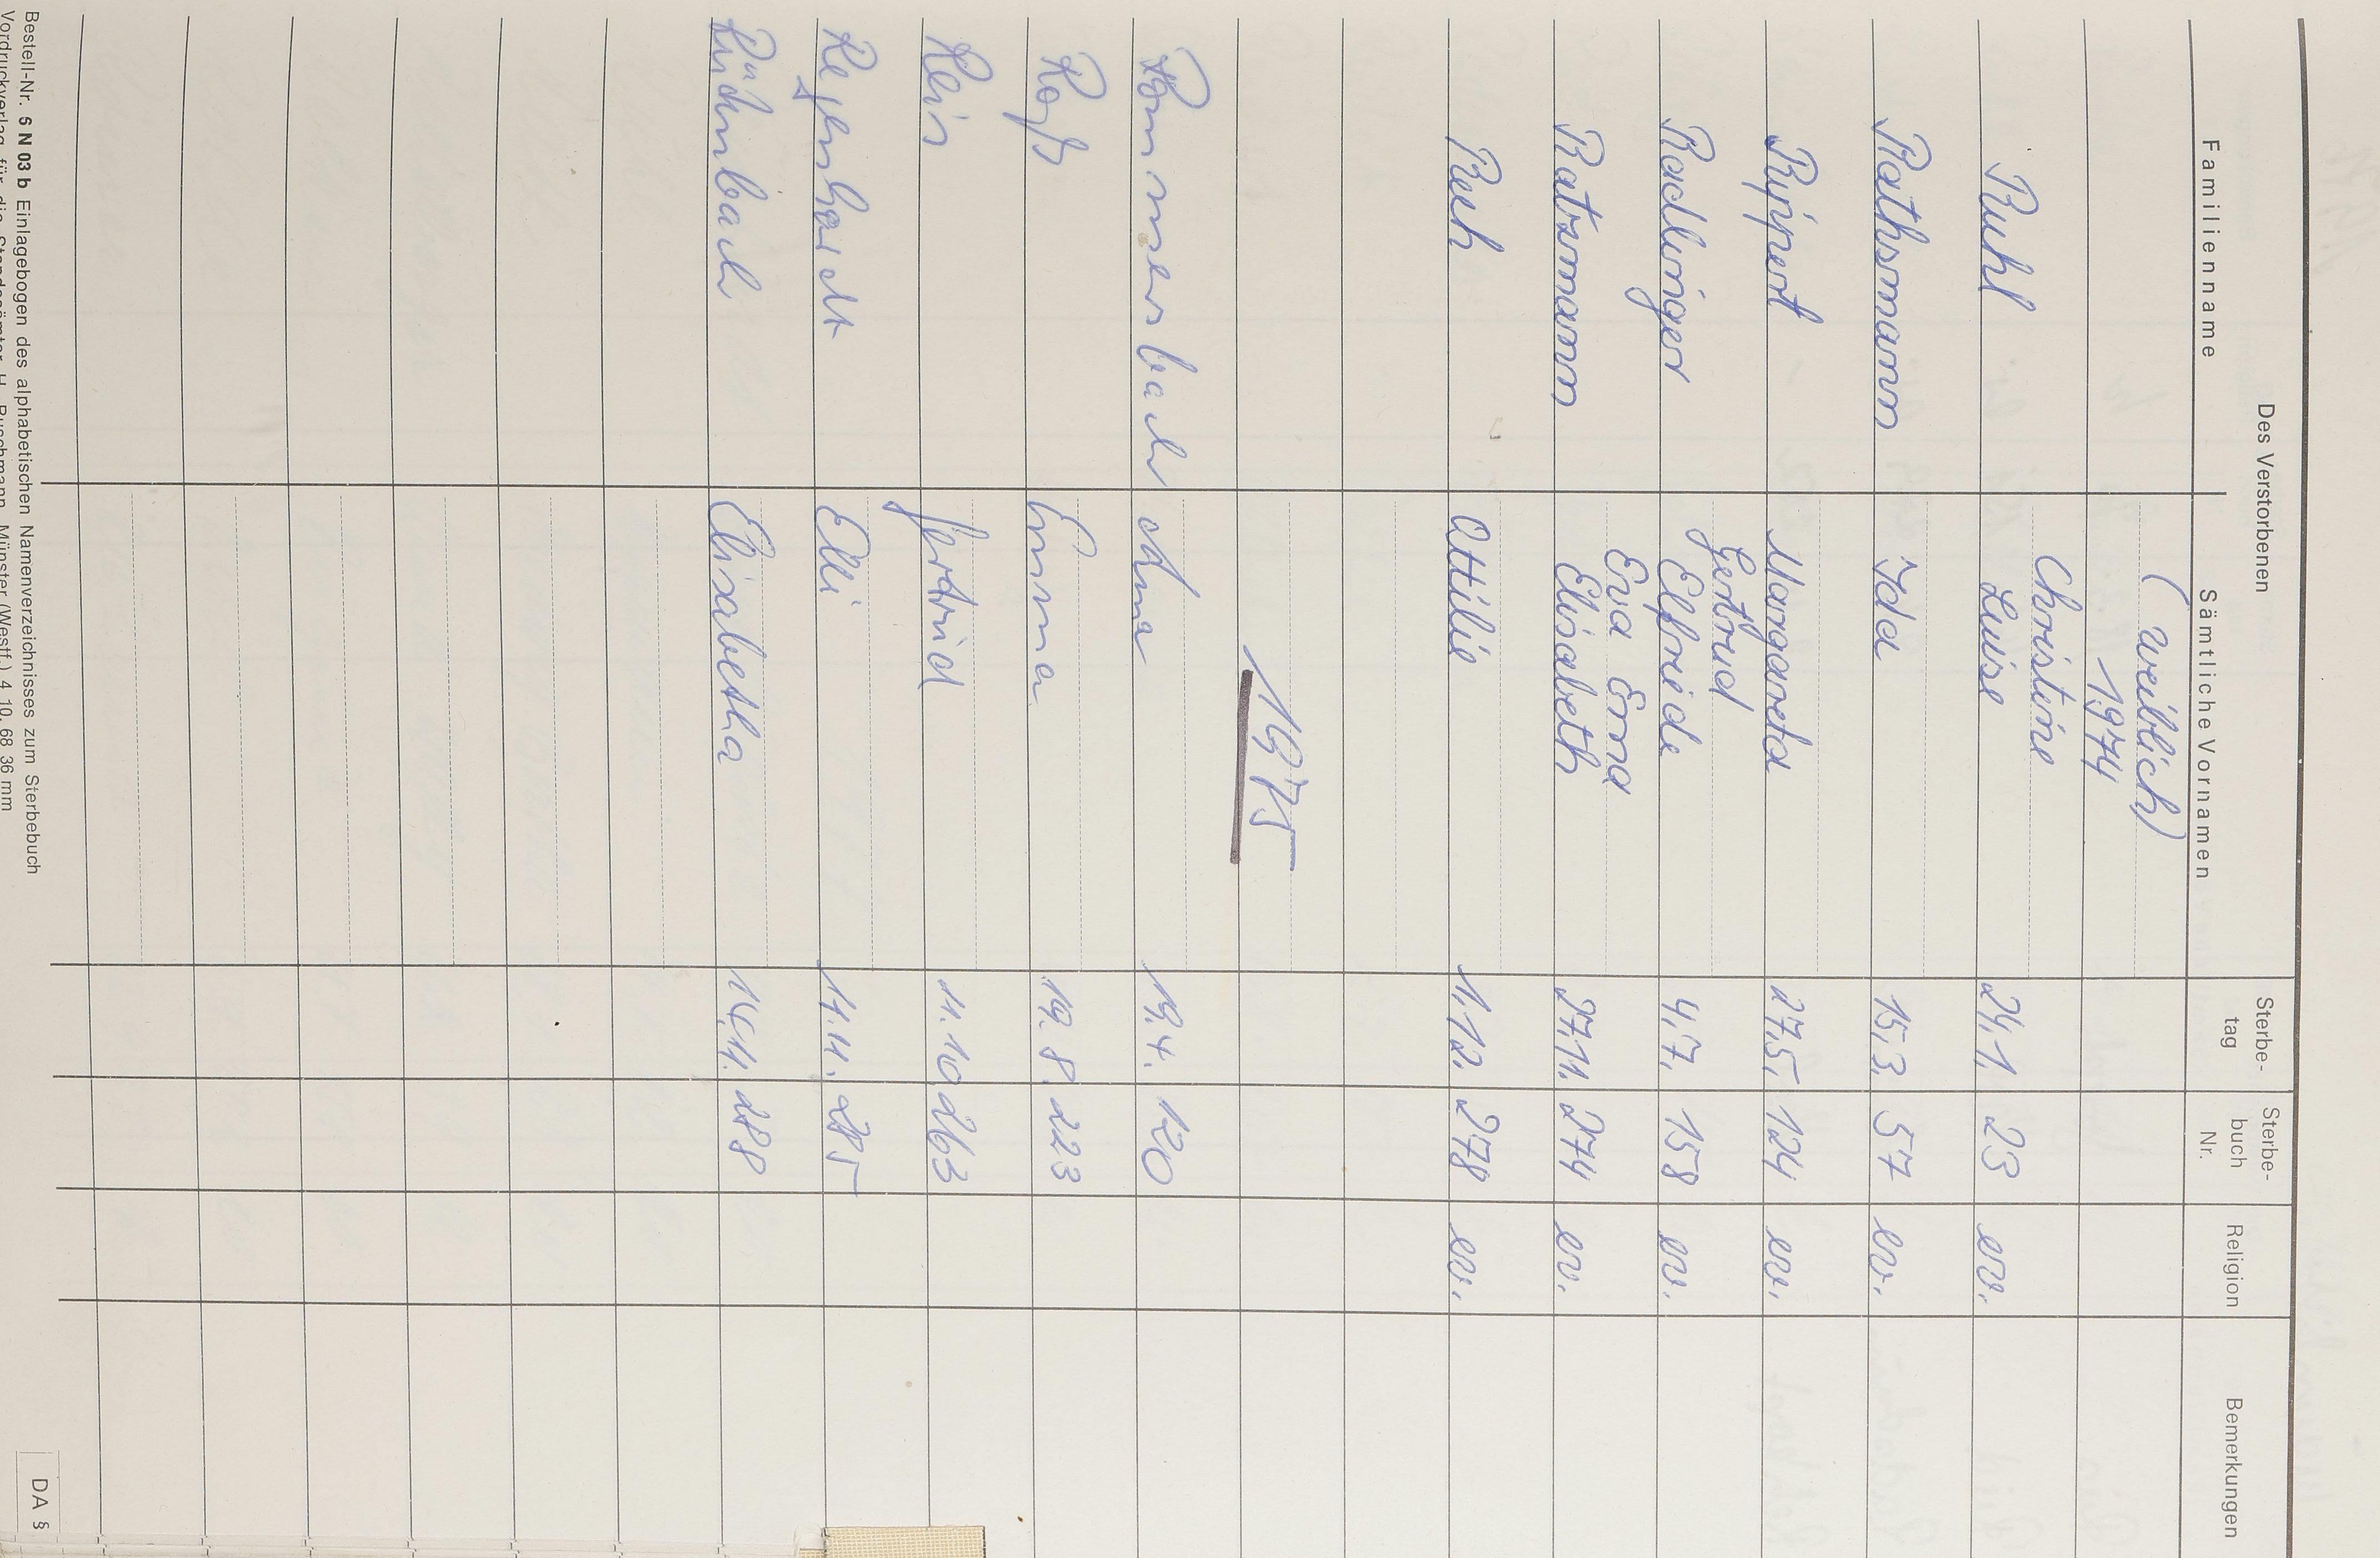 Des Verstorbenen
Familienname Sämtliche Vornamen Sterbe-tag Sterbe-buch Nr. Religion Bemerkungen
(weiblich)
1974
Christine
Ruhl Luise 24.1. 23 ev.
Rathsmann Ida 15.3. 57 ev.
Rippert Margareta 27.5. 124 ev.
Gertrud
Radlinger Elfriede 4.7. 158 ev.
Eva Erna
Ratzmann Elisabeth 27.11. 274 ev.
Reeh Ottilie 1.12. 278 ev.
1975
Rommersbach Anna 19.4. 120
Emma 19.8. 223
Reis Gertrud 11.10 263
Regenhardt Elli 11.11. 285
Elisabetha 14.11. 288
Bestell-Nr. 6 N 03 b Einlagebogen des alphabetischen Namenverzeichnisses zum Sterbebuch
Vordruckverlag für die Standesämter H. Buschmann, Münster (Westf.) 4. 10. 68 36 mm
DA §